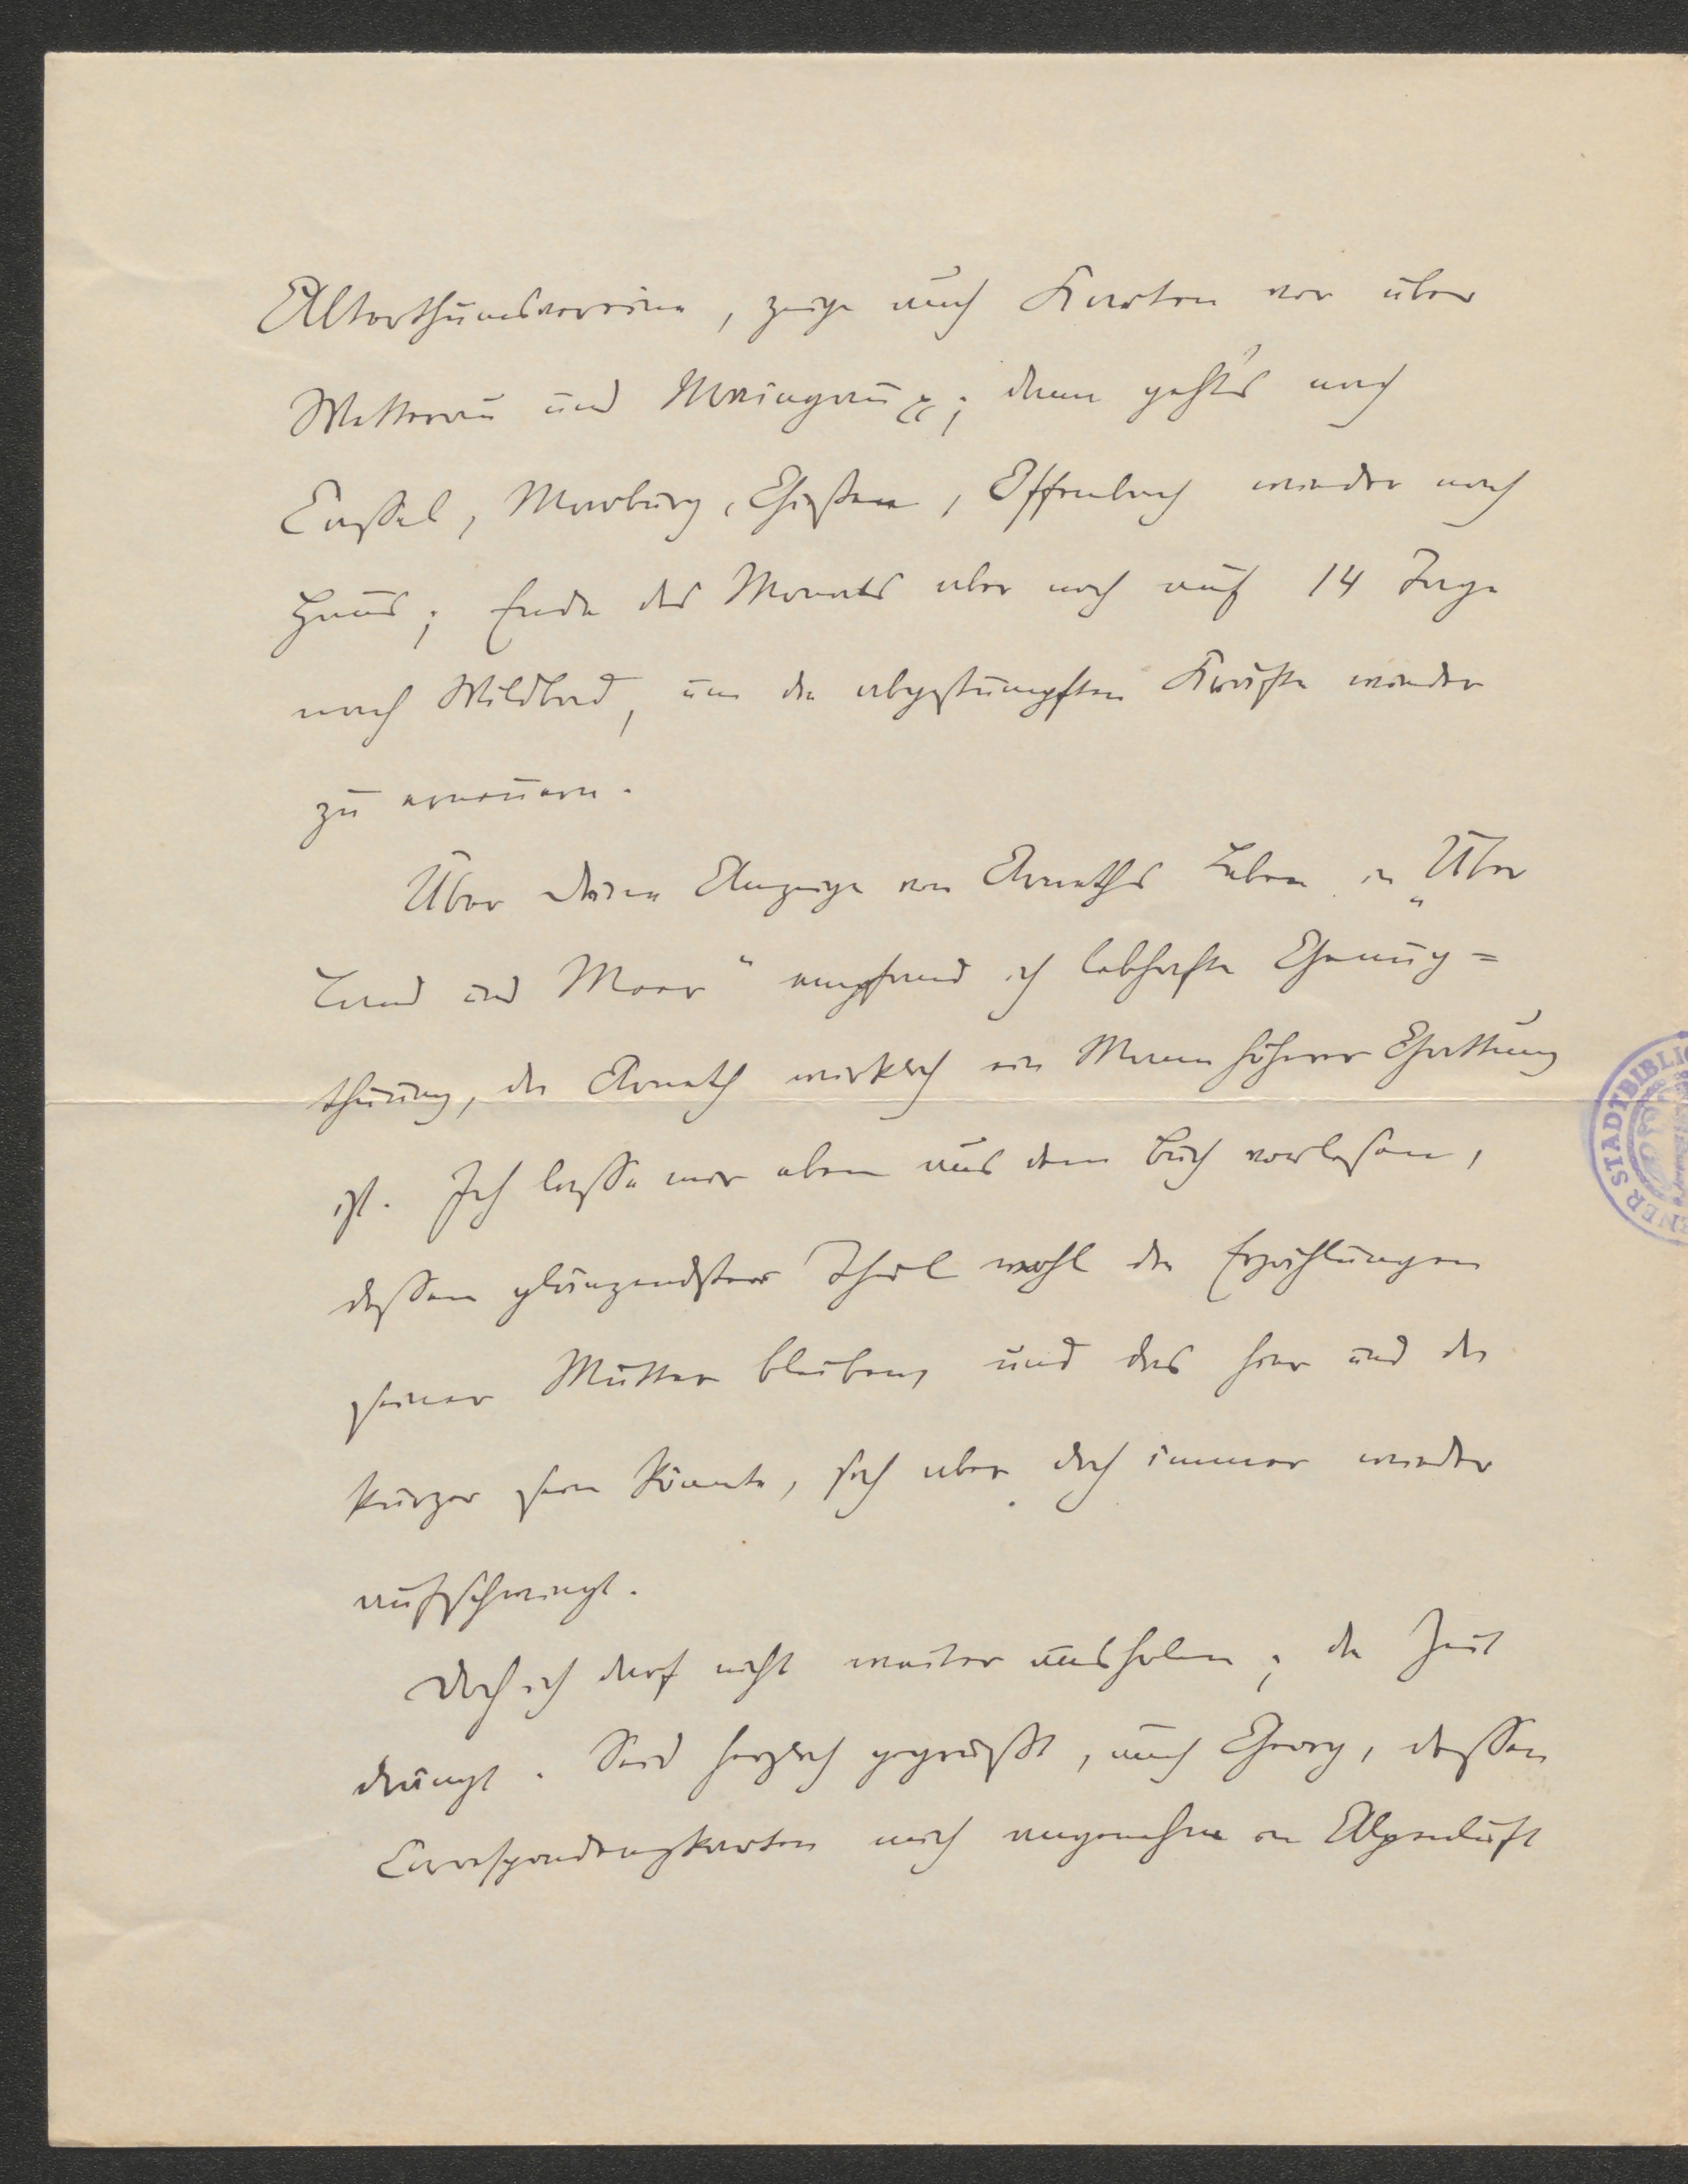 Alterthumsvereine, zeige auch Karten vor über
Wetterau und Maingau ꝛc; dann geht's nach
Cassel, Marburg, Gießen, Offenbach wieder nach
Haus; Ende des Monats aber noch auf 14 Tage
nach Wildbad, um die abgestumpften Kräfte wieder
zu erneuern.
Über Deine Anzeige von Arneths Leben in „Über
Land und Meer" empfand ich lebhafte Genug=
thuung, da Arneth wirklich ein Mann höherer Gattung
ist. Ich lasse mir eben aus dem Buch vorlesen,
dessen glänzendster Theil wohl die Erzählungen
seiner Mutter bleiben, und das hier und da
kürzer sein könnte, sich aber doch immer wieder
aufschwingt.
Doch ich darf nicht weiter ausholen; die Zeit
drängt. Seid herzlich gegrüßt, auch Georg, dessen
Correspondenzkarten mich angenehm an Alpenluft
STADTBIBLI